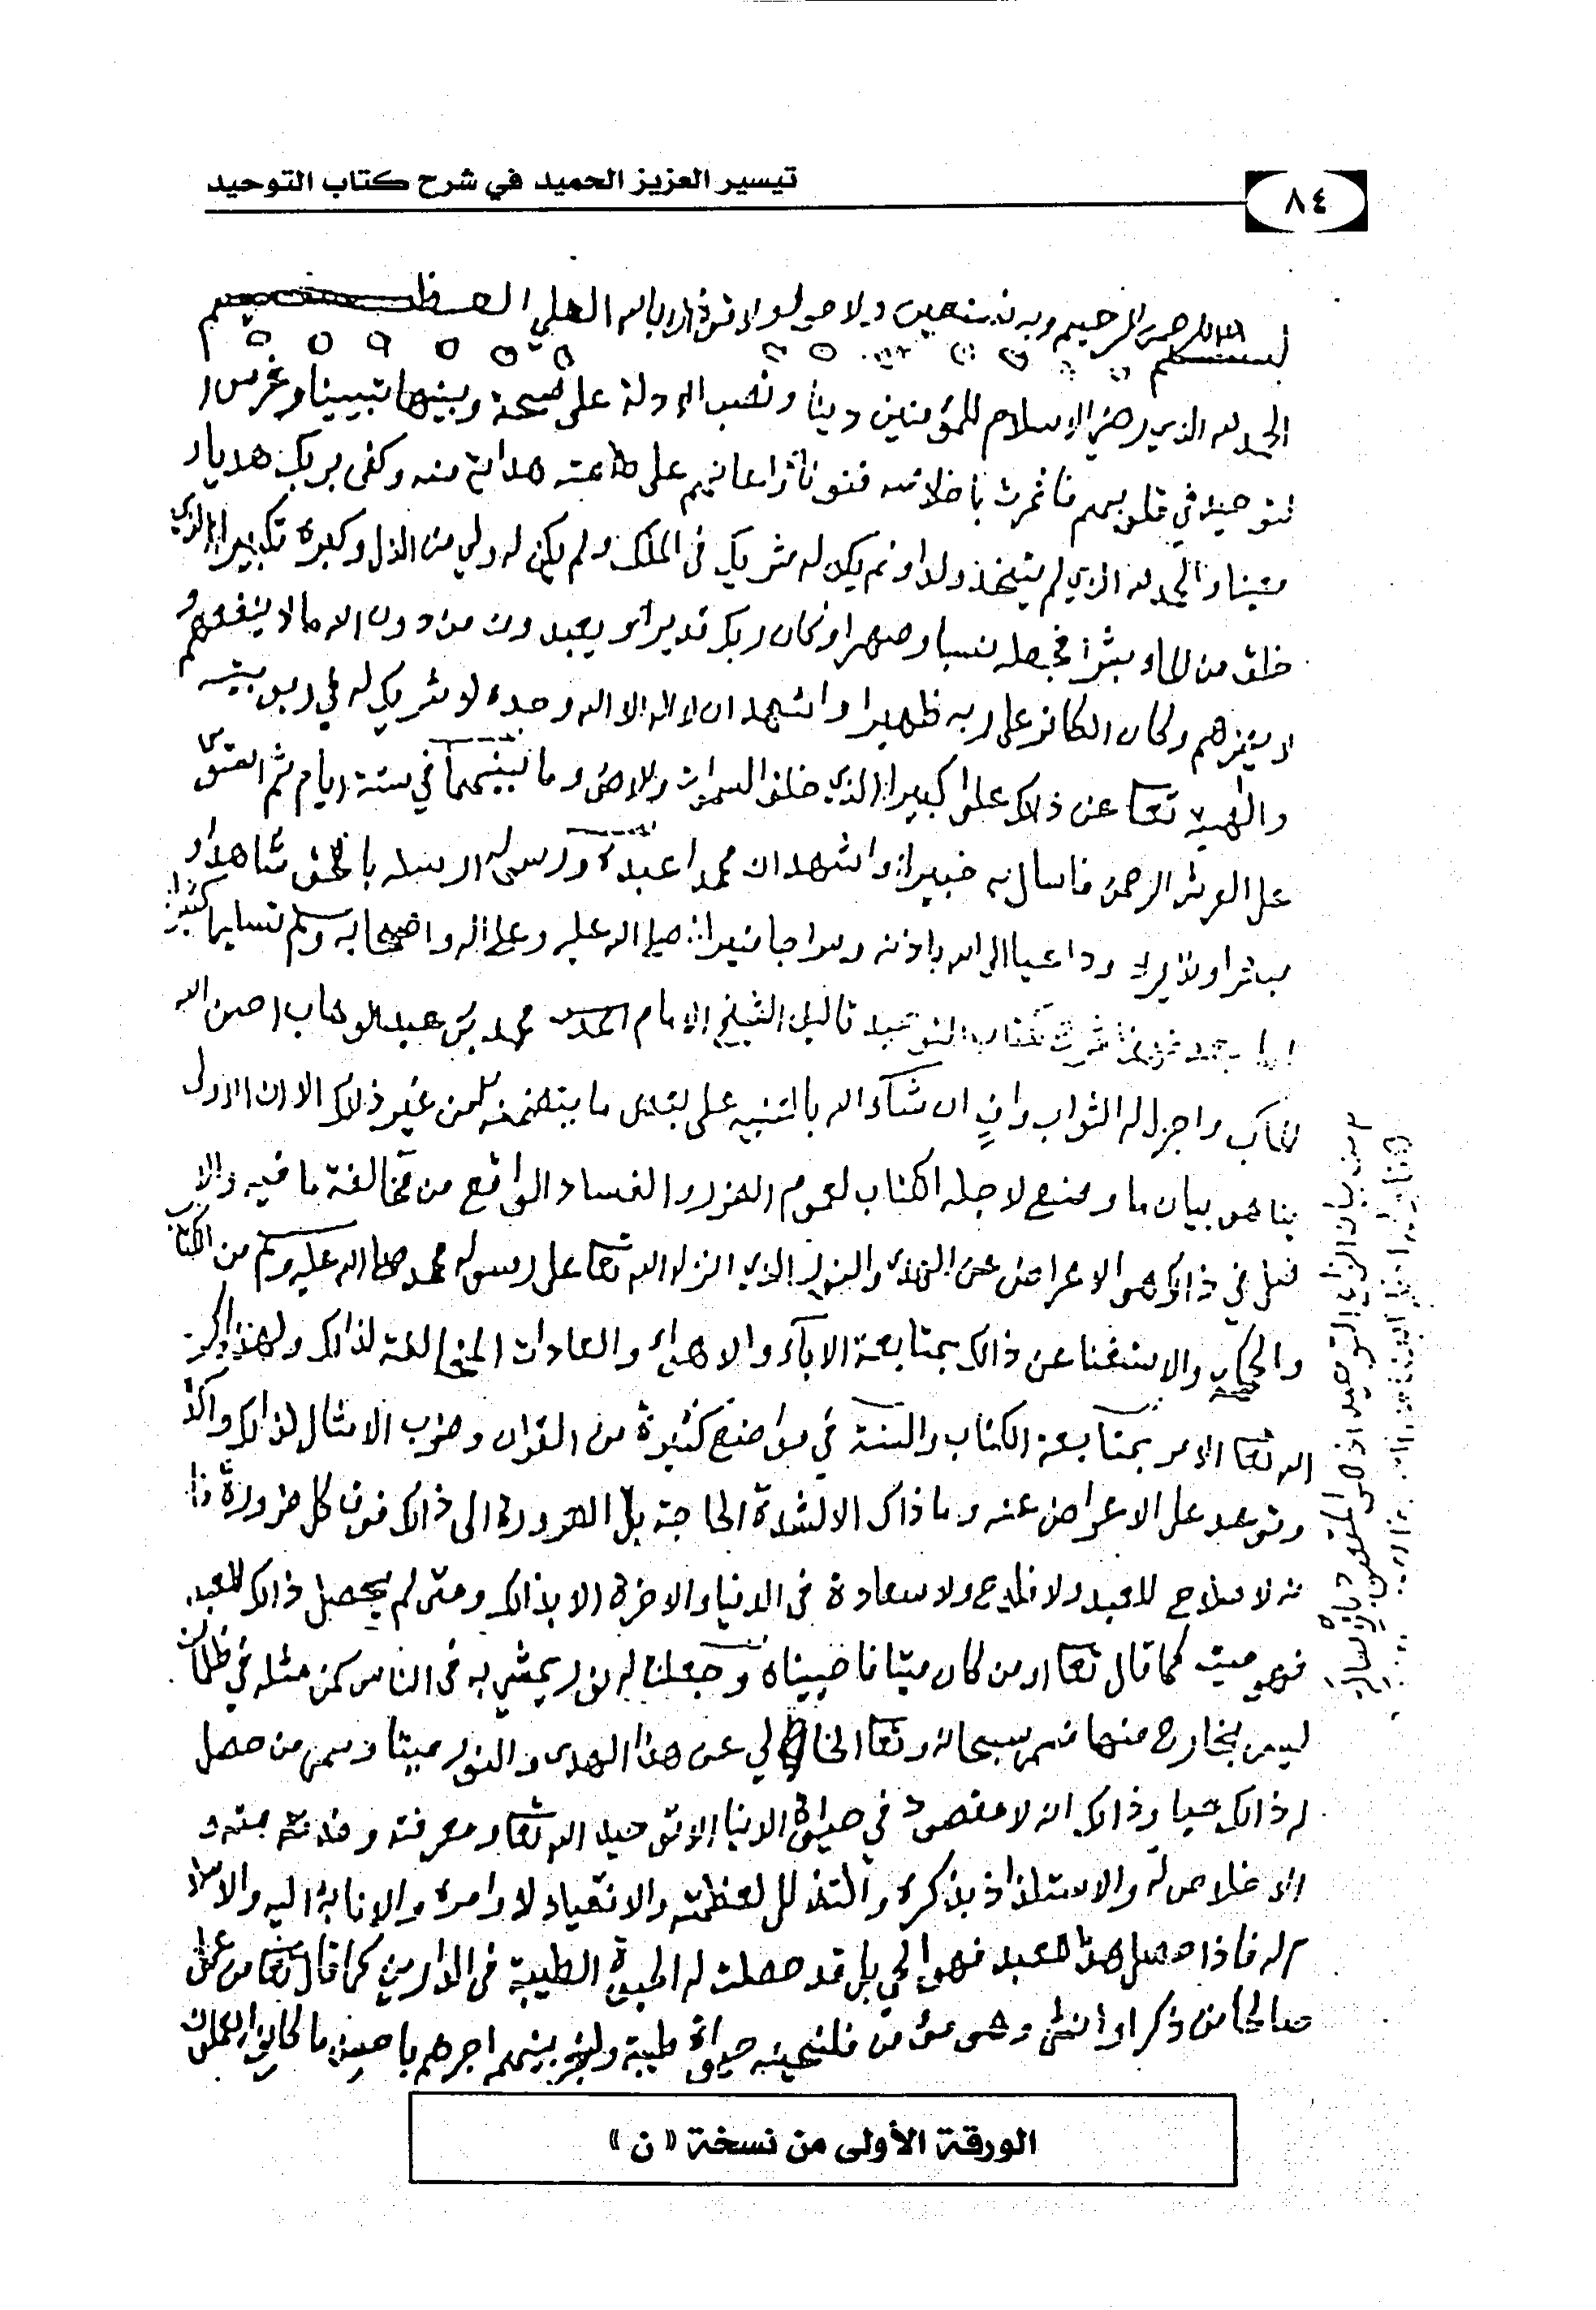 تيسير العزيز الحميد في شرح كتاب التوحيد
٨٤
بسم الله الرحمن الرحيم وبه نستعين ولا حول ولا قوة الا بالله العلي العظيم
الحمد لله الذي رضي الاسلام للمؤمنين دينا ونصب الادلة على صحته وبينها تبيينا وغرس ا
لتوحيد في قلوبهم فاثمرت باخلاصه فنونا واعانهم على طاعته هداية منه وكفى بربك هديا و
معينا والحمد لله الذي لم يتخذ ولدا ولم يكن له شريك في الملك ولم يكن له ولي من الذل وكبره تكبيرا الذي
خلق من الماء بشرا فجعله نسبا وصهرا وكان ربك قديرا ويعبدون من دون الله ما لا ينفعهم و
لا يضرهم وكان الكافر على ربه ظهيرا واشهد ان لا اله الا الله وحده لا شريك له في ربوبيته
والهيته تعا عن ذلك علوا كبيرا الذي خلق السموات والارض وما بينهما في ستة ايام ثم استوى
على العرش الرحمن فاسال به خبيرا واشهد ان محمدا عبده ورسوله ارسله بالحق شاهدا و
مبشرا ونذيرا وداعيا الى الله باذنه وسراجا منيرا صلى الله عليه وعلى اله واصحابه وسلم تسليما كثيرا
اما بعد فهذا شرح لكتاب التوحيد تاليف الشيخ الامام محمد بن عبد الوهاب احسن الله
لماب واجزل له الثواب وافٍ ان شاء الله بالتنبيه على بعض ما يتضمنه من غير ذلك الا ان الاولى
بنا هو بيان ما وضع لاجله الكتاب لعموم الضرر والفساد الواقع من مخالفة ما فيه والا
صل في ذلك هو الاعراض عن الهدى والنور الذي انزله الله تعا على رسوله محمد صلى الله عليه وسلم من الكتاب
والحكمة والاستغنا عن ذالك بمتابعة الآباء والاهواء والعادات المخالفة لذالك ولهذا كرر
الله تعا الامر بمتابعة الكتاب والسنة في مواضع كثيرة من القران وضرب الامثال لذالك واكد
وتوعد على الاعراض عنه وما ذاك الا لشدة الحاجة بل الضرورة الى ذالك فوق كل ضرورة فا
نه لا صلاح للعبد ولا فلاح ولا سعادة في الدنيا والاخرة الا بذالك ومتى لم يحصل ذالك للعبد
فهو ميت كما قال تعا اومن كان ميتا فاحييناه وجعلنا له نورا يمشي به في الناس كمن مثله في ظلمات
ليس بخارج منها فسمى سبحانه وتعا الخالي عن هذا الهدى والنور ميتا وسمى من حصل
له ذالك حيا وذالك انه لا مقصود في حياة الدنيا الا توحيد الله تعا ومعرفته وخدمته و
الاخلاص له والاستلذاذ بذكره والتذلل لعظمته والانقياد لاوامره والانابة اليه والاسلا
م له فاذا حصل هذا للعبد فهو الحي بل قد حصلت له الحيوة الطيبة في الدارين كما قال تعا من عمل
صالحا من ذكر او انثى وهو مؤمن فلنحيينه حياة طيبة ولنجزينهم اجرهم باحسن ما كانوا يعملون
الورقة الأولى من نسخة « ن »